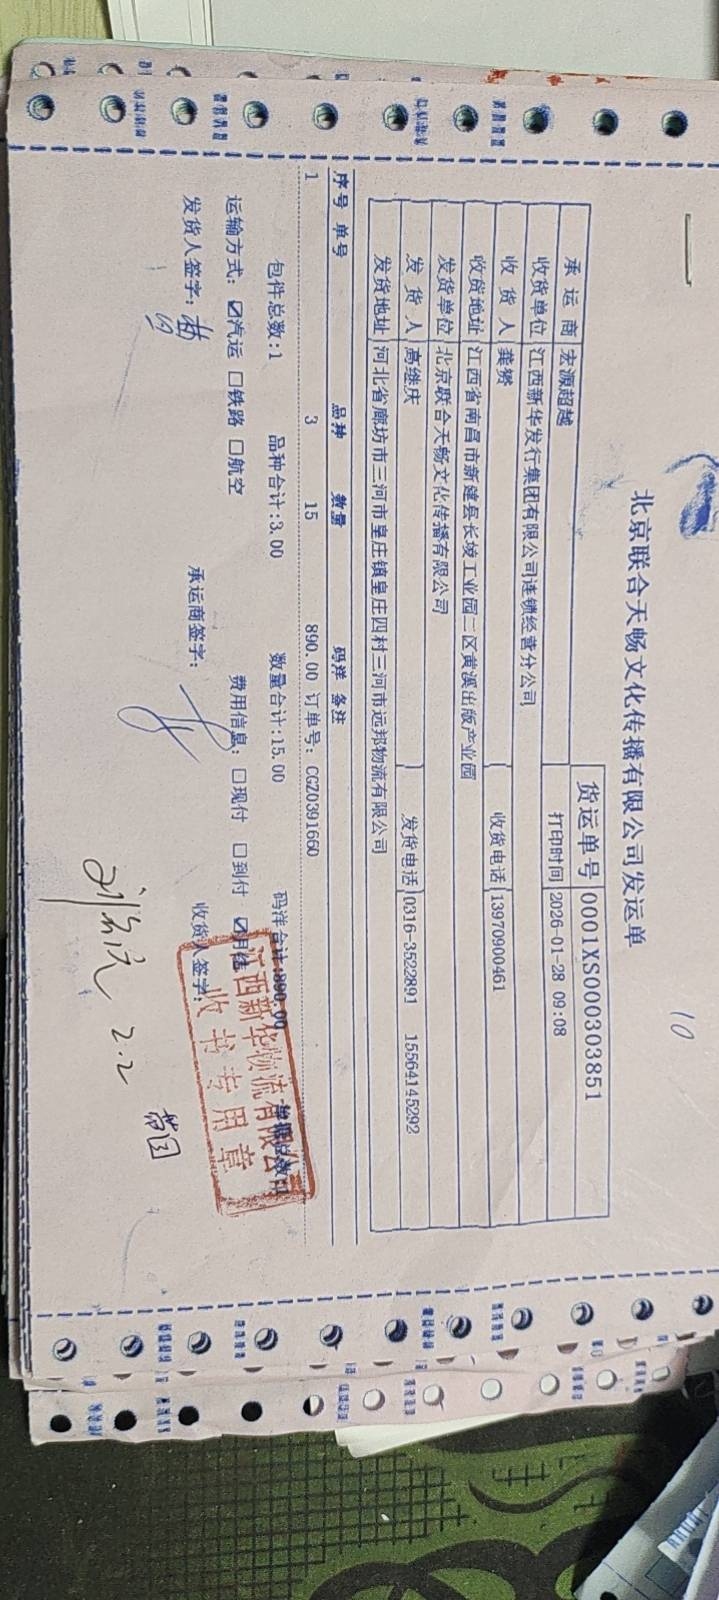 10
北京联合天畅文化传播有限公司发运单
货运单号 0001XS000303851
承运商 宏源超越 打印时间 2026-01-28 09:08
收货单位 江西新华发行集团有限公司连锁经营分公司
收货人 龚赟 收货电话 13970900461
收货地址 江西省南昌市新建县长堎工业园二区黄溪出版产业园
发货单位 北京联合天畅文化传播有限公司
发货人 高继庆 发货电话 0316-3522891 15564145292
发货地址 河北省廊坊市三河市皇庄镇皇庄四村三河市远邦物流有限公司
序号 单号 品种 数量 码洋 备注
1 3 15 890.00 订单号: CGZ0391660
包件总数:1 品种合计:3.00 数量合计:15.00 码洋合计:890.00
运输方式: ☑汽运 □铁路 □航空 费用信息: □现付 □到付 ☑月结
发货人签字: 承运商签字: 收货人签字:
江西新华物流有限公司
收书专用章
2.2